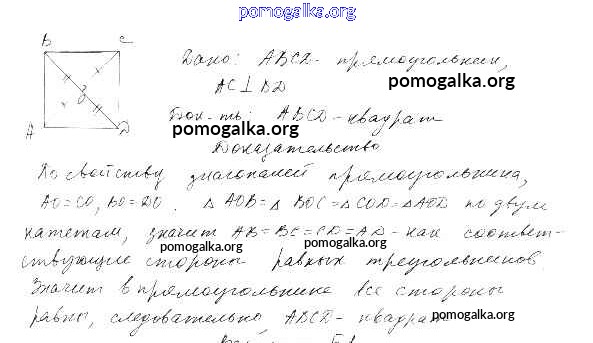 pomogalka.org
B C
Дано: ABCD - прямоугольник,
AC ⊥ BD
pomogalka.org
Док-ть: ABCD - квадрат
pomogalka.org
A D
Доказательство
По свойству диагоналей прямоугольника,
AO = CO, BO = DO. △AOB = △BOC = △COD = △AOD по двум
катетам, значит AB = BC = CD = AD - как соответ-
pomogalka.org pomogalka.org
ствующие стороны равных треугольников
Значит в прямоугольнике все стороны
равны, следовательно ABCD - квадрат
pomogalka.org